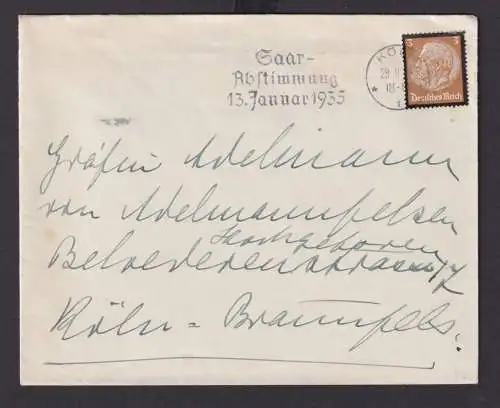 Saar-
Abstimmung
13. Januar 1935
KÖL
3 3
Deutsches Reich
Gräfin Adelmann
von Adelmannfelsen
Hochgeboren
Belvederestrasse
Köln = Braunsfels.